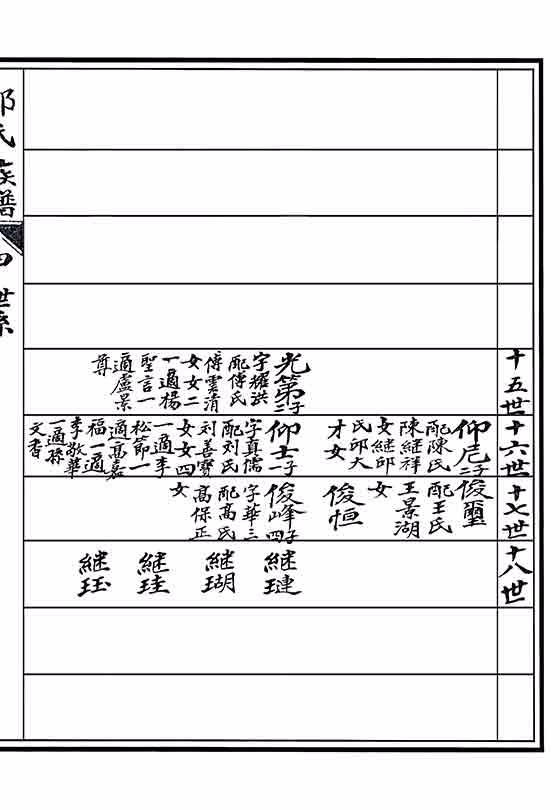 十五世
光第 二子
字耀洪
配傅氏
傅雲清
女女二
一適楊
聖言一
適盧景
尊
十六世
仰尼 二子
配陳氏
陳継祥
女継邱
氏邱大
才女
仰士 一子
字真儒
配刘氏
刘善寳
女女四
一適李
松節一
適高嘉
福一適
李敬華
一適孫
文香
十七世
俊璽
配王氏
王景湖
女
俊恒
俊峰 四子
字華三
配高氏
高保正
女
十八世
継璉
継瑚
継珪
継珏
氏族譜
四
世系